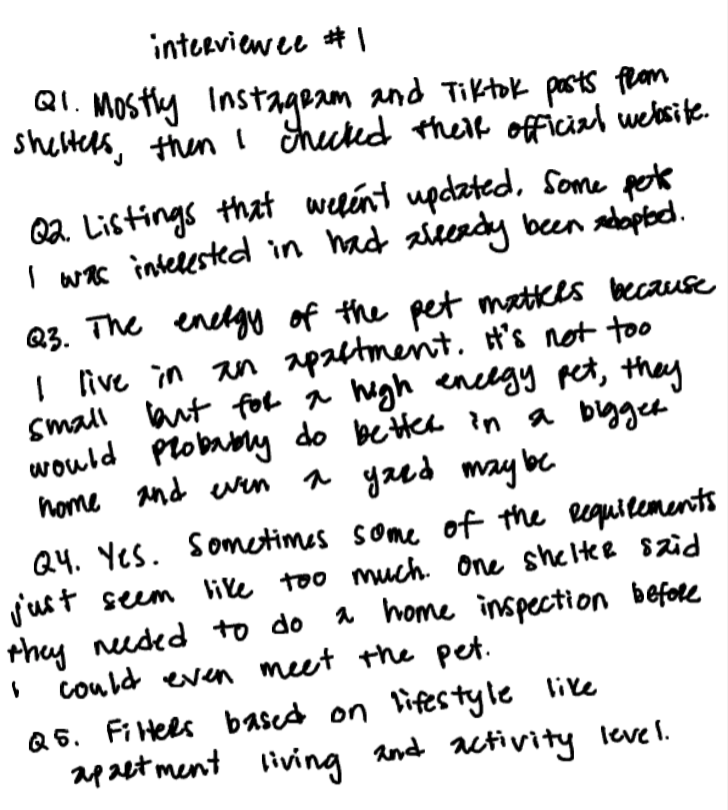 interviewee #1
Q1. Mostly Instagram and TikTok posts from
shelters, then I checked their official website.
Q2. Listings that weren't updated. Some pets
I was interested in had already been adopted.
Q3. The energy of the pet matters because
I live in an apartment. it's not too
small but for a high energy pet, they
would probably do better in a bigger
home and even a yard maybe
Q4. Yes. Sometimes some of the requirements
just seem like too much. One shelter said
they needed to do a home inspection before
I could even meet the pet.
Q5. Filters based on lifestyle like
apartment living and activity level.